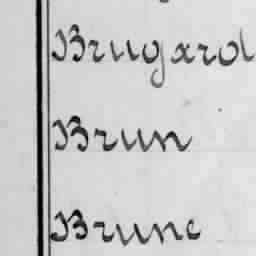 Brugard
Brun
Brune